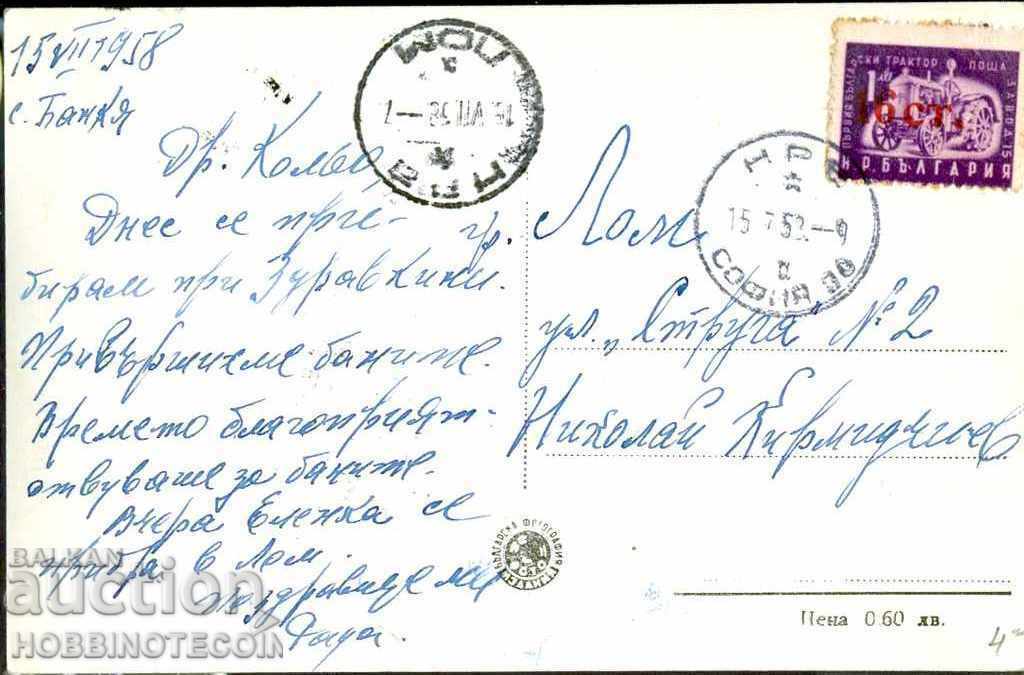 15 VII 1958
с. Банкя
Др. Кольо,
Днес се при-
бирам при Здравкини.
Привършихме баните.
Времето благоприят-
ствуваше за баните.
Вчера Еленка се
прибра в Лом.
Поздравявам
гр. Лом
ул. „Струга" № 2
Николай Кирмидчиев
ПЪРВИЯ БЪЛГАРСКИ ТРАКТОР ПОЩА
1 лв
16 ст.
Н.Р. БЪЛГАРИЯ
ЛОМ
СОФИЯ
БЪЛГАРСКА ФОТОГРАФИЯ
Цена 0.60 лв.
4
BALKAN
auction
HOBBINOTECOIN